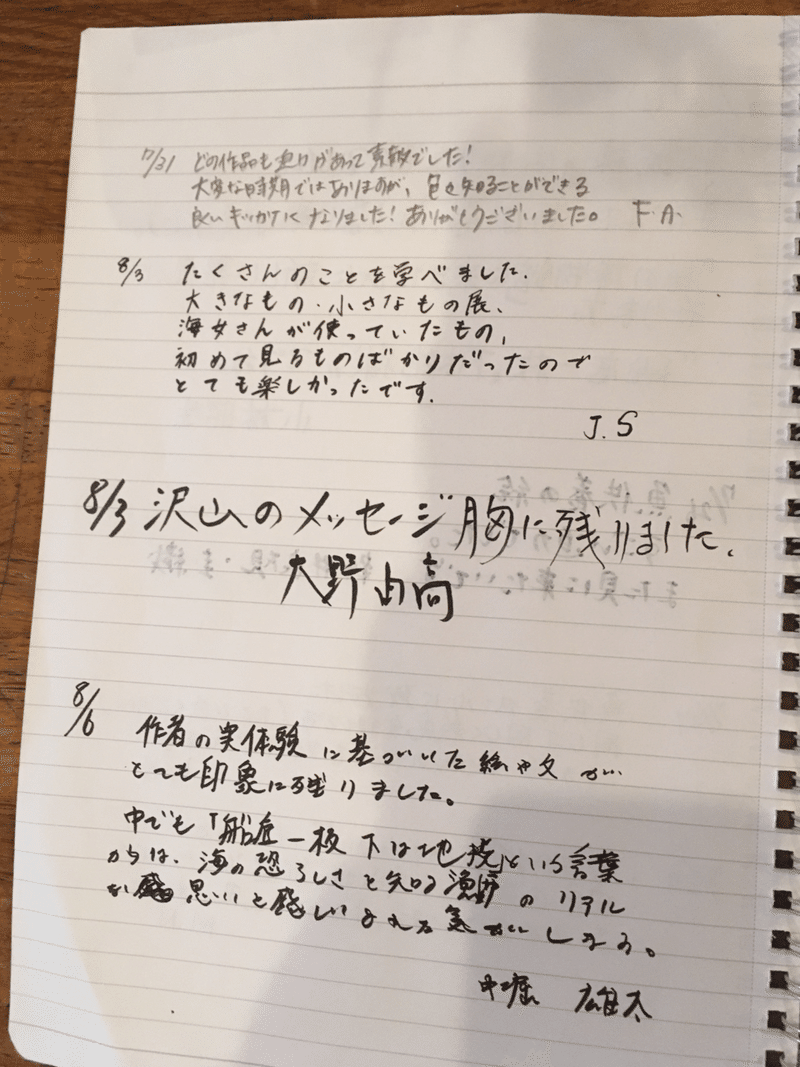 7/31 どの作品も迫力があって素敵でした!
大変な時期ではありますが、色々知ることができる
良いキッカケになりました!ありがとうございました。 F.A.
8/3 たくさんのことを学べました.
大きなもの・小さなもの展、
海女さんが使っていたもの,
初めて見るものばかりだったので
とても楽しかったです.
J.S
8/3 沢山のメッセージ胸に残りました.
大野由高
8/6 作者の実体験に基づいた絵や文が
とても印象に残りました。
中でも「船底一枚下は地獄」という言葉
からは、海の恐ろしさを知る漁師のリアル
な思いを感じとれる気がします。
中堀 雄太